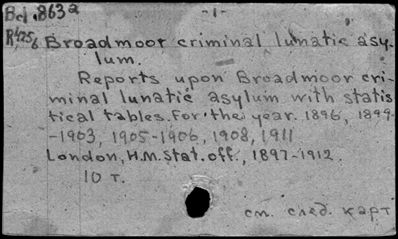 Bd.863a -1-
R1256 Broadmoor criminal lunatic asy-
lum.
Reports upon Broadmoor cri-
minal lunatic asylum with statis
tical tables. For the year. 1896, 1899-
-1903, 1905-1906, 1908, 1911
London, H.M. Stat. off., 1897-1912.
10 т.
см. след. карт